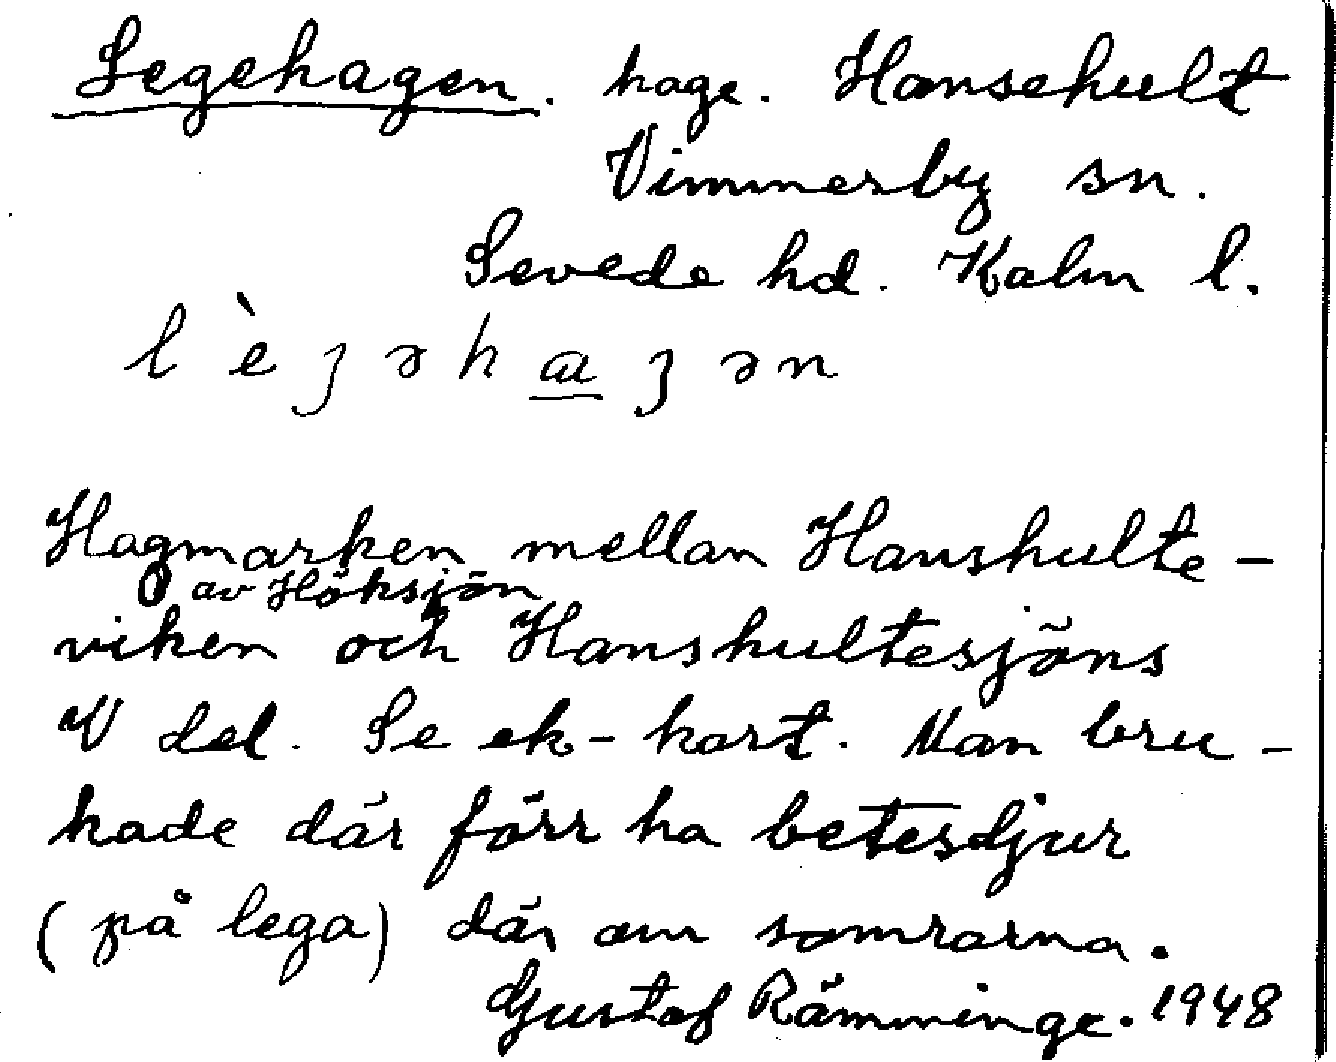 Legehagen. hage. Hansehult
Vimmerby sn.
Sevede hd. Kalm l.
l è ȷ ə h a ȷ ə n
Hagmarken mellan Hanshulte-
O av Höksjön
viken och Hanshultesjöns
V del. Se ek-kart. Man bru-
kade där förr ha betesdjur
(på lega) där om somrarna.
Gustaf Rämminge. 1948